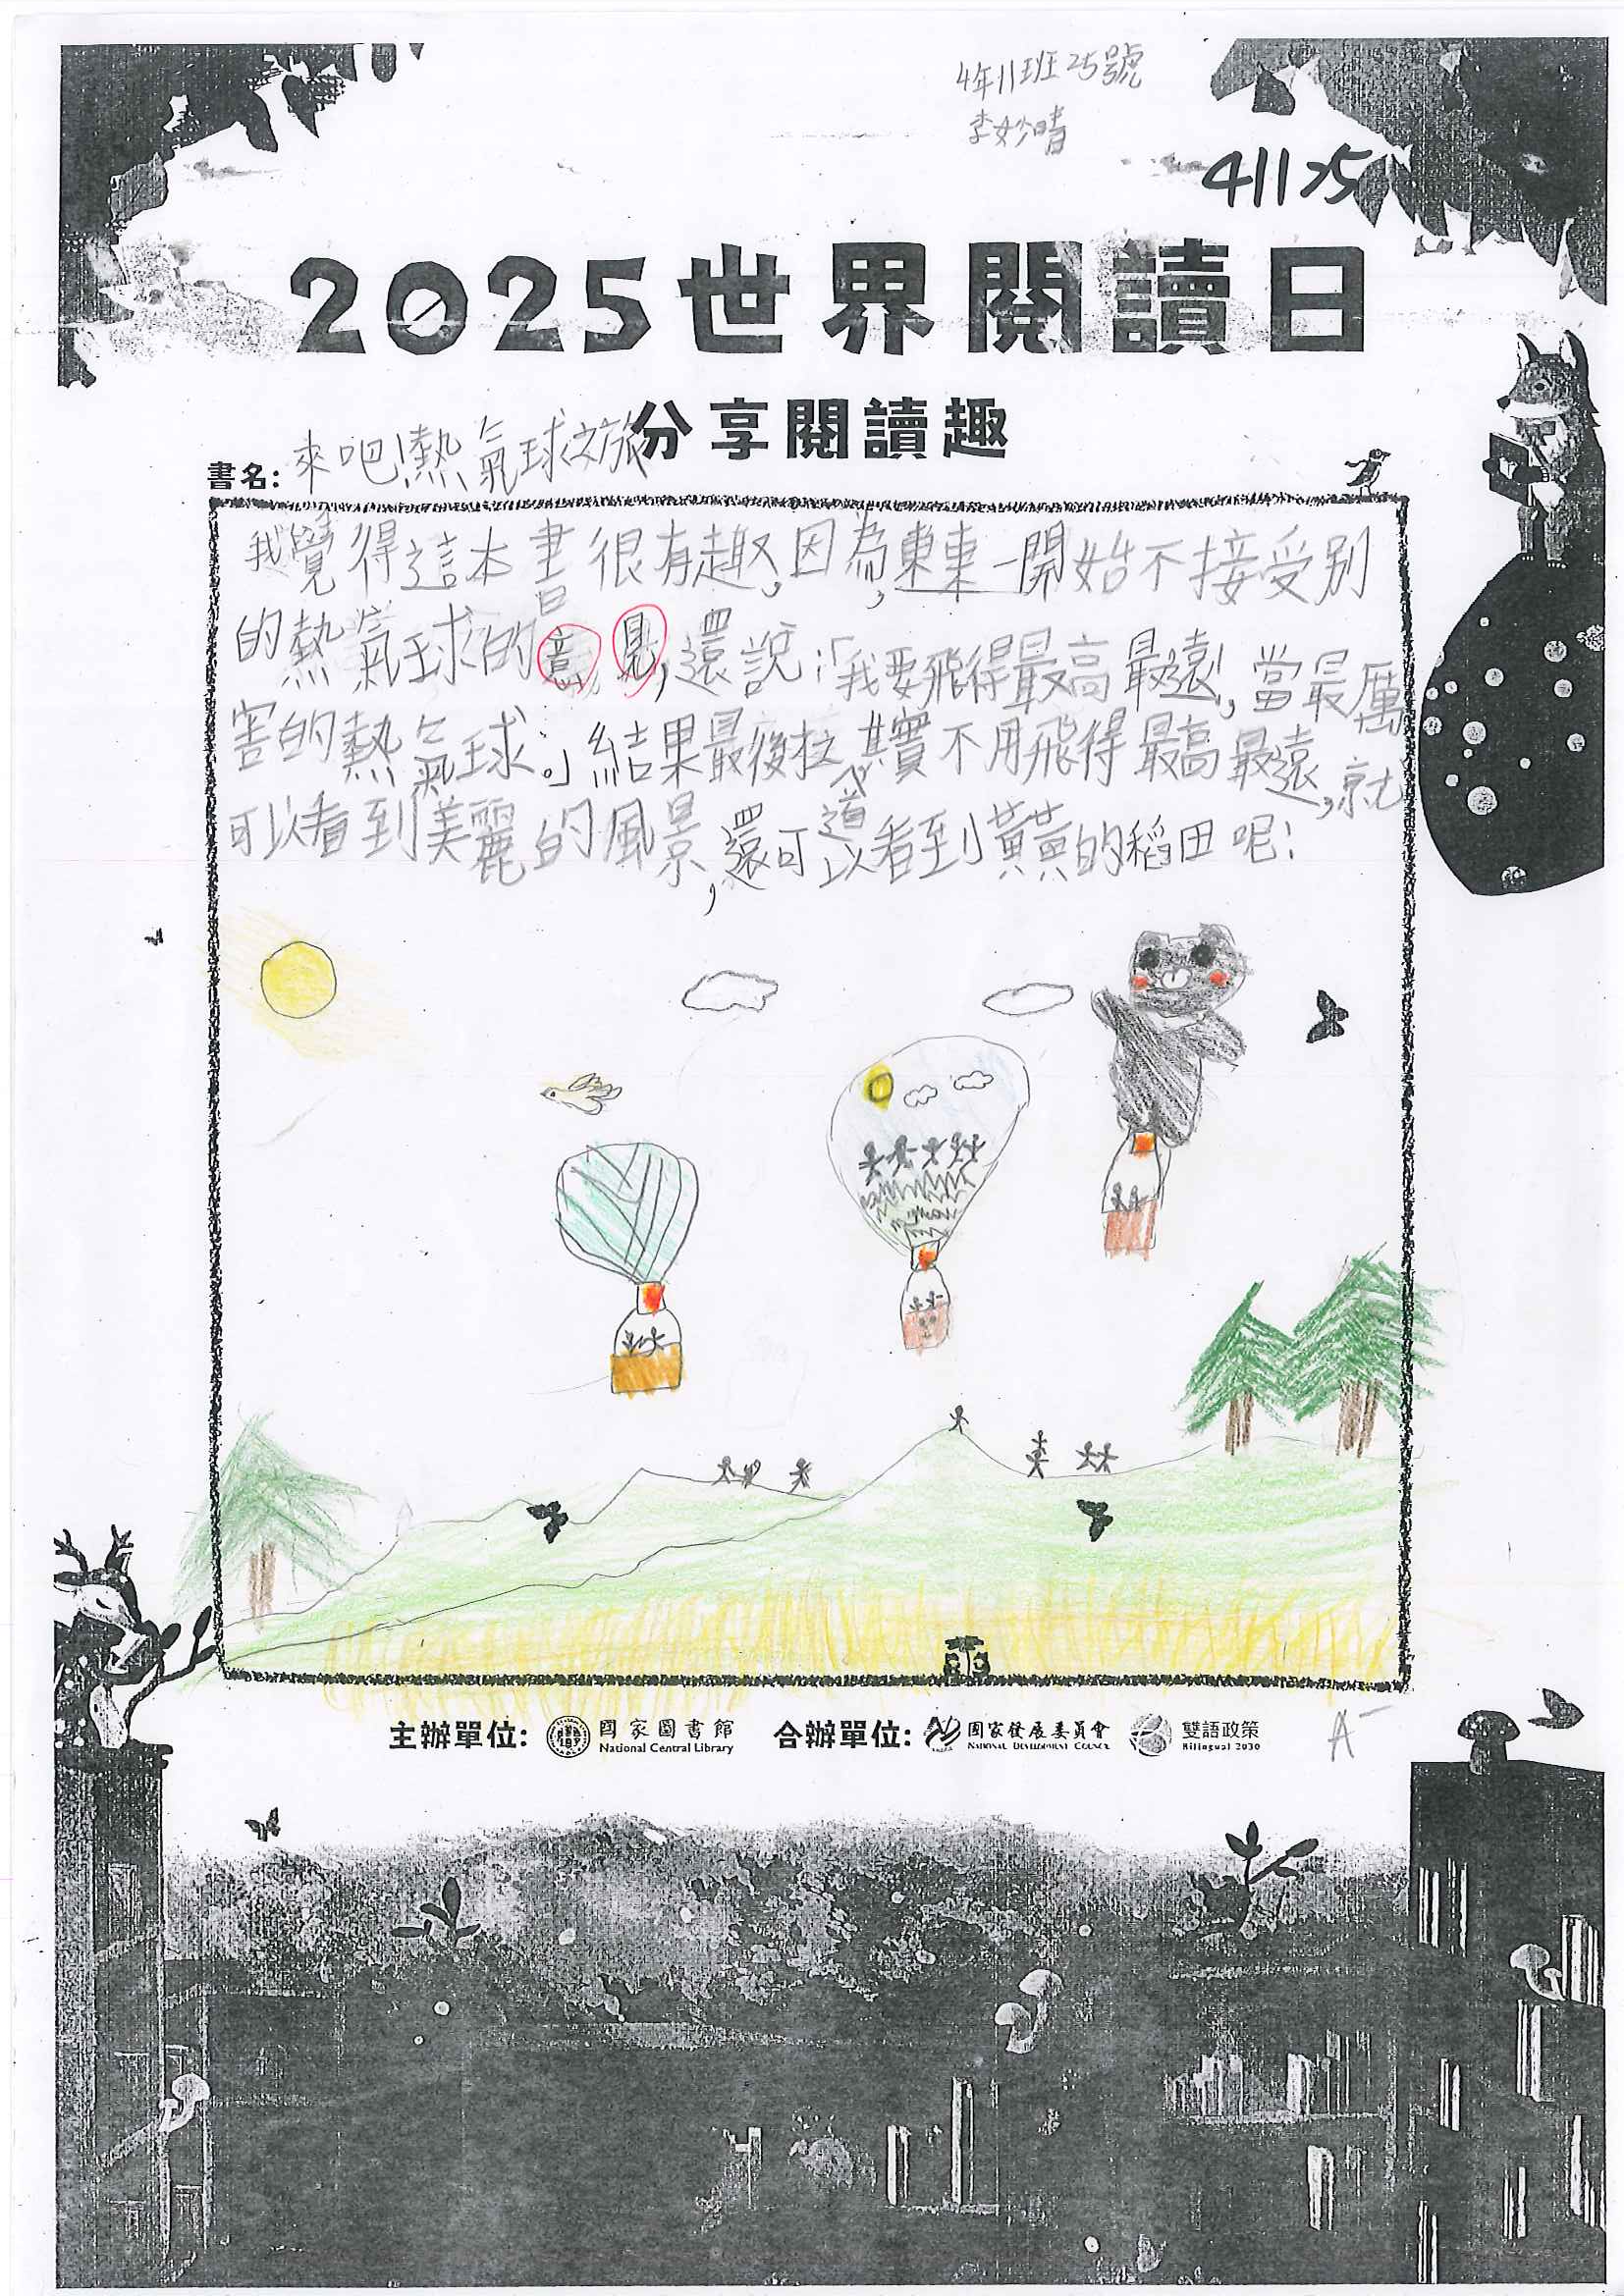 4年11班25號
李妙晴
41125
2025世界閱讀日
分享閱讀趣
書名:來吧!熱氣球之旅
我覺得這本書很有趣,因為,東東一開始不接受別
的熱氣球的意見,還說:「我要飛得最高最遠!,當最厲
害的熱氣球。」結果最後找道其實不用飛得最高最遠,就
可以看到美麗的風景,還可以看到黃黃的稻田呢!
主辦單位: 國家圖書館 National Central Library 合辦單位: 國家發展委員會 National Development Council 雙語政策 Bilingual 2030
A-